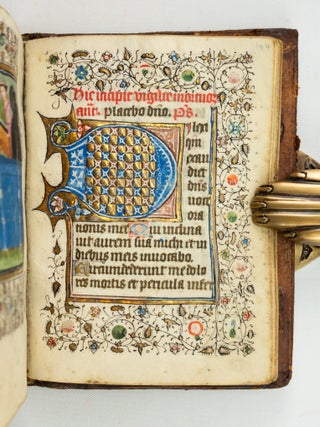 Hic incipit vigilie mortuor
ant. placebo dno. Ps.
ilexi
qm
exau
diet
dns
uoce
ora
tionis mee Qui inclina
uit aurem sua michi et in
diebus meis inuocabo.
Circumdederunt me dolo
res mortis et pericula infer